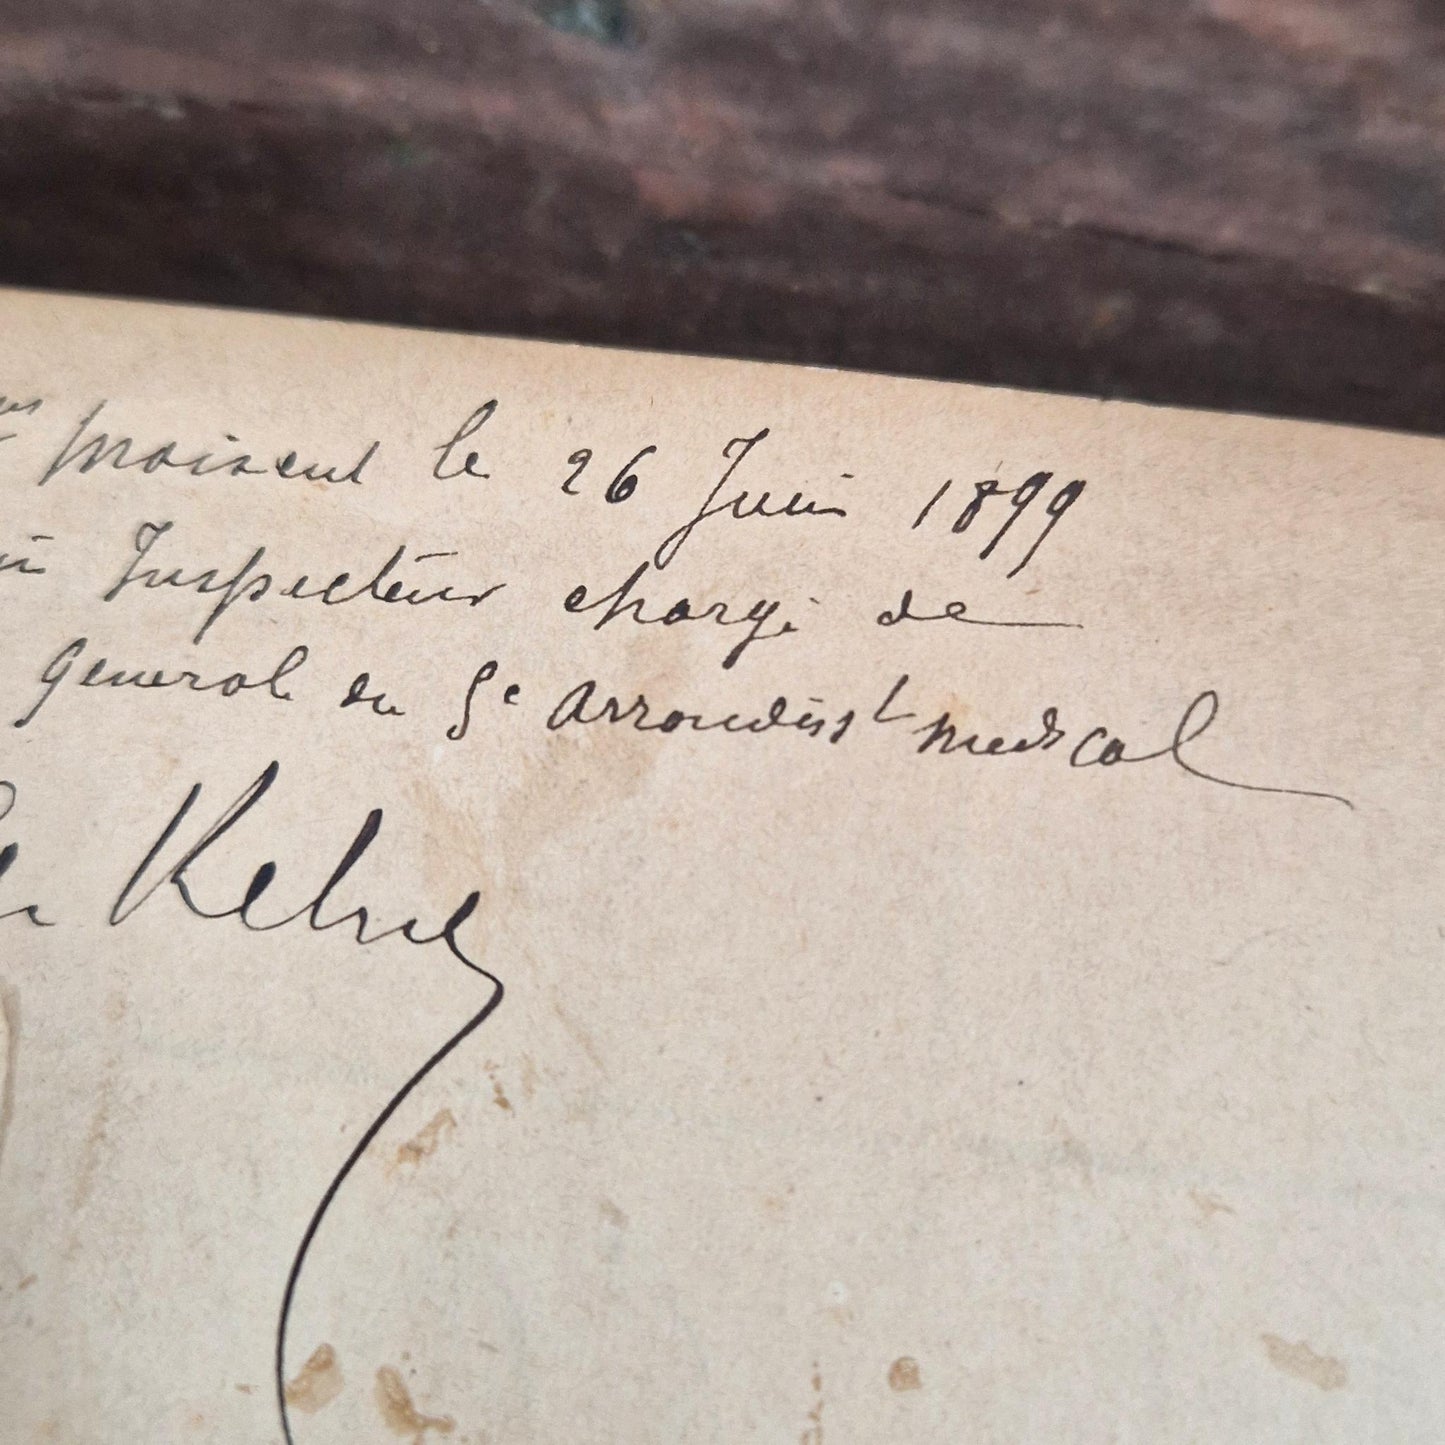 Moisent le 26 Juin 1899
Inspecteur chargé de
General du 5e Arrondisst medical